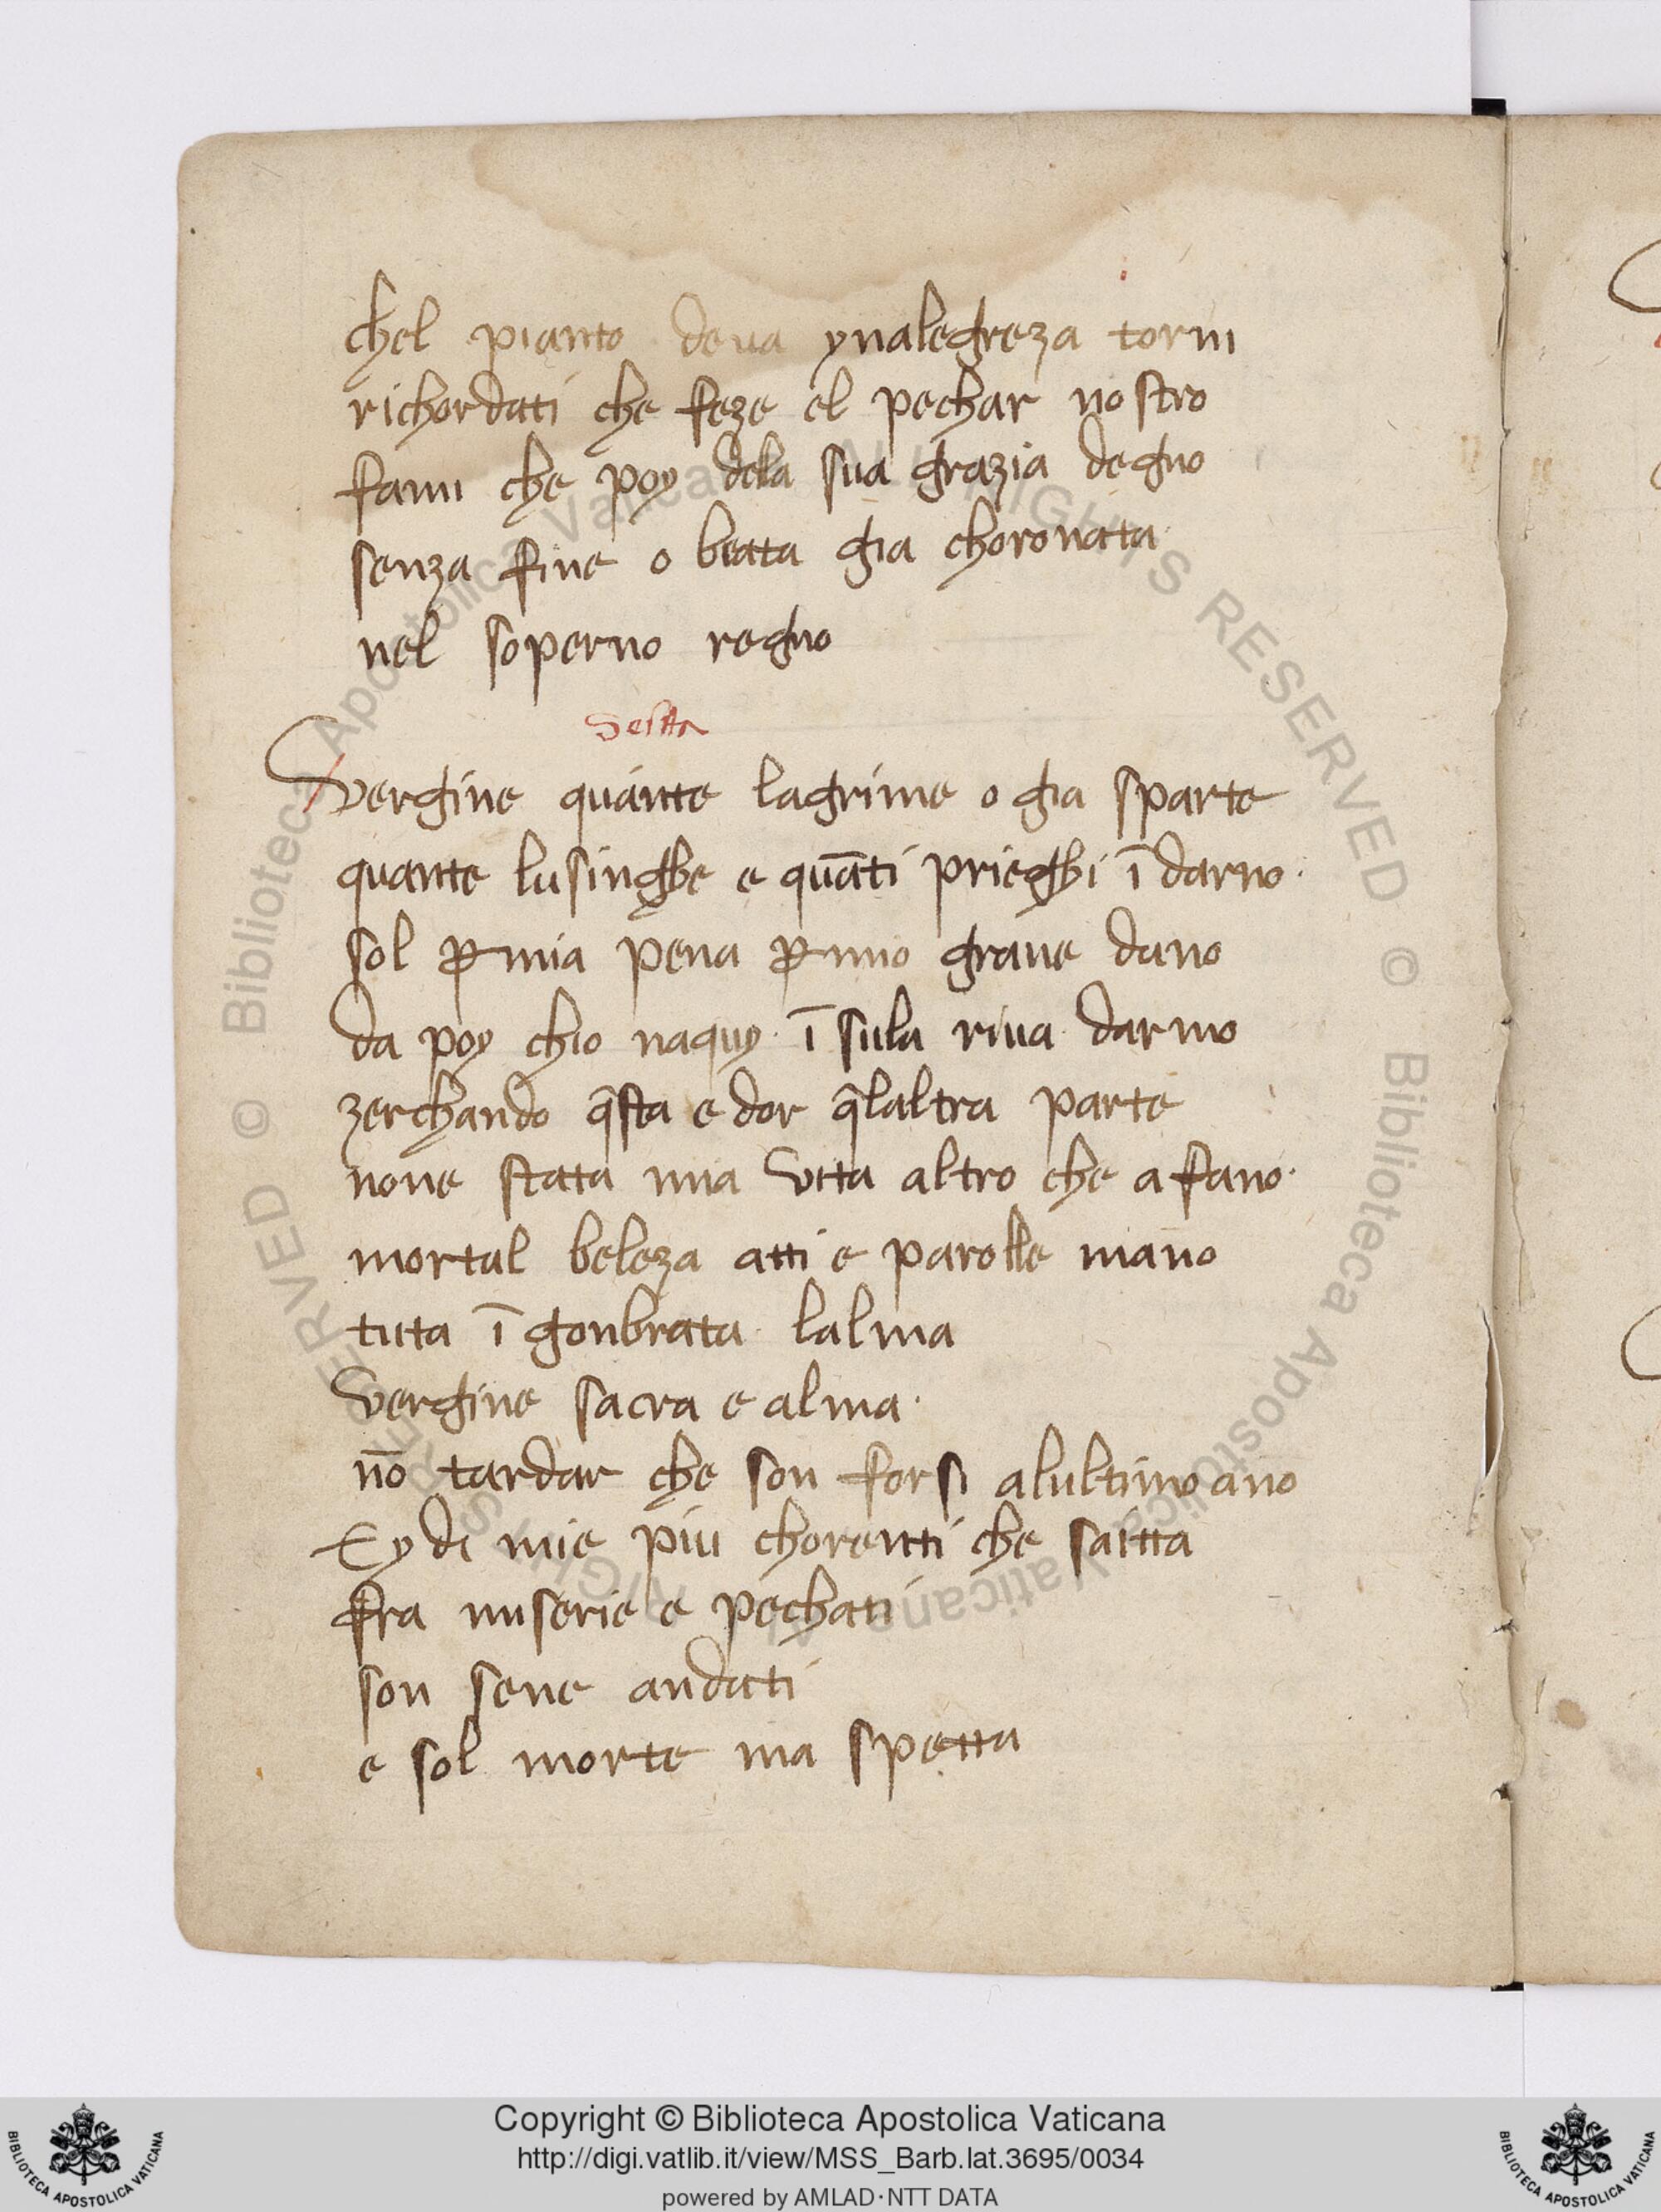 chel pianto deua ynalegreza torni
richordati che feze el pechar nostro
fami che poy dela sua grazia degno
senza fine o beata gia choronata
nel soperno regno
Sesta
Vergine quante lagrime o gia sparte
quante lusinghe e quãti prieghi ĩ darno
sol ꝑ mia pena ꝑ mio graue dano
da poy chio naquy ĩ sula riua darno
zerchando q̃sta e dor q̃laltra parte
none stata mia vita altro che afano
mortal beleza atti e parolle mãno
tuta ĩ gonbrata lalma
Vergine sacra e alma
nõ tardar che son forsi alultimo ano
Ey di mie piu chorenti che saitta
fra miserie e pechati
son sene andati
e sol morte ma spetta
© Biblioteca Apostolica Vaticana ALL RIGHTS RESERVED © Biblioteca Apostolica Vaticana ALL RIGHTS RESERVED
Copyright © Biblioteca Apostolica Vaticana
http://digi.vatlib.it/view/MSS_Barb.lat.3695/0034
powered by AMLAD·NTT DATA
BIBLIOTECA APOSTOLICA VATICANA
BIBLIOTECA APOSTOLICA VATICANA